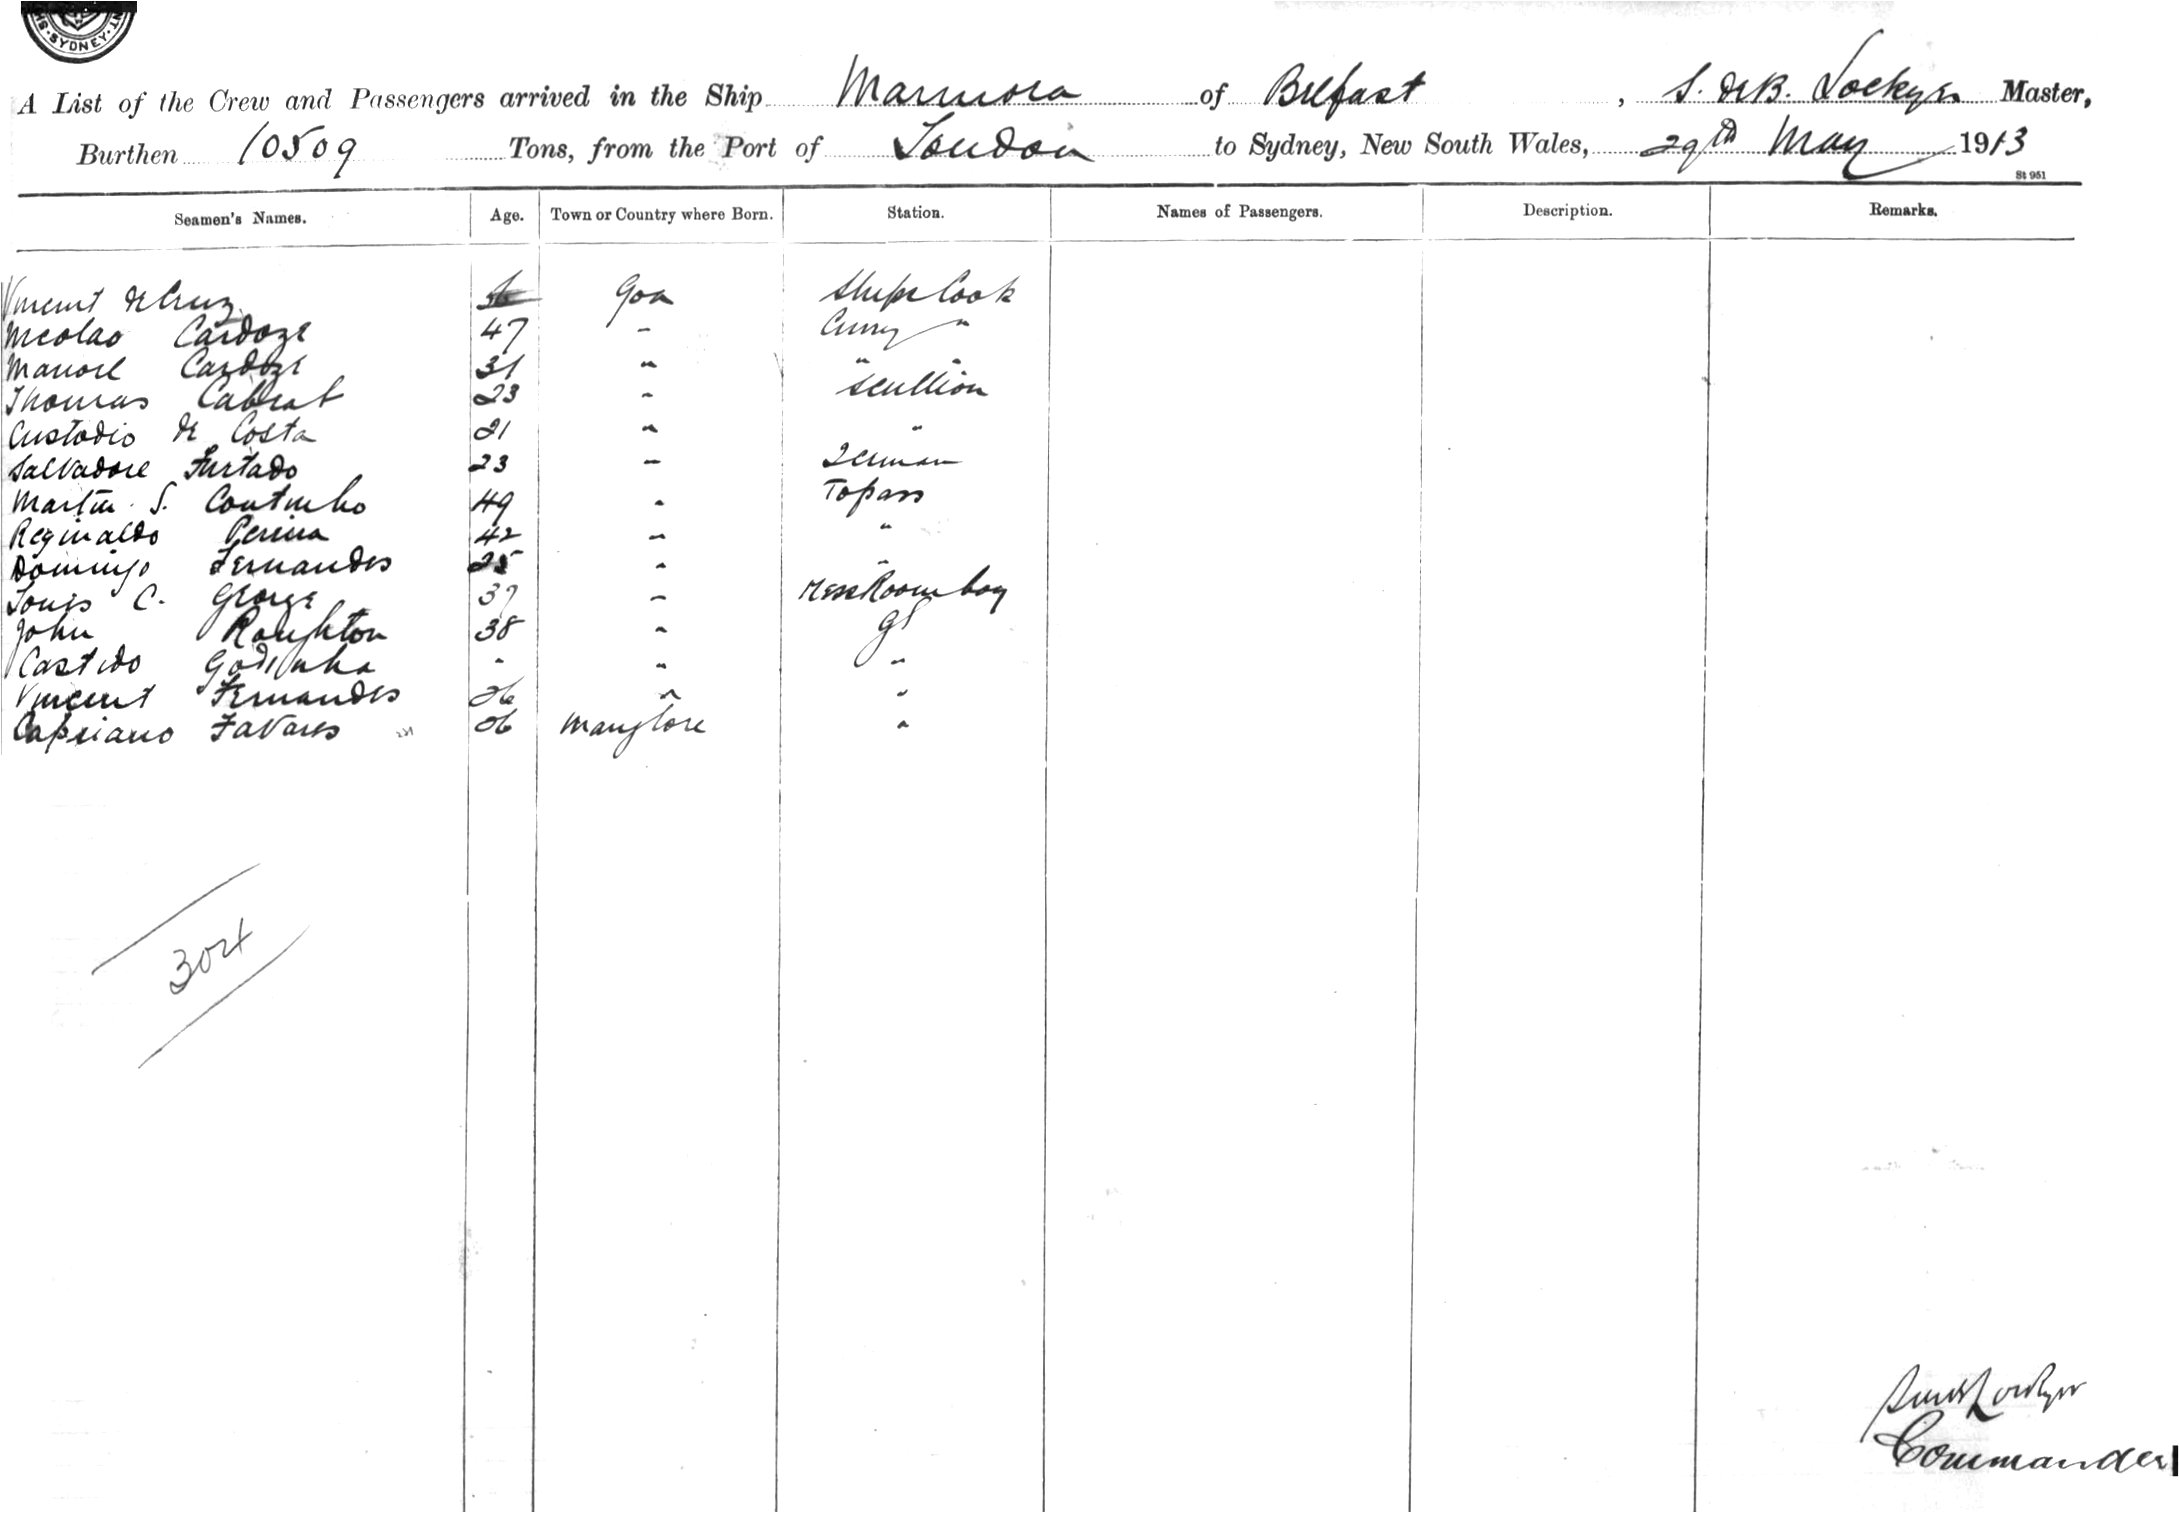 SYDNEY
A List of the Crew and Passengers arrived in the Ship Marmora of Belfast, S. de B. Lockyer Master,
Burthen 10509 Tons, from the Port of London to Sydney, New South Wales, 29th May 1913
St 951
Seamen's Names. Age. Town or Country where Born. Station. Names of Passengers. Description. Remarks.
Vincent de Cruz Goa Ships Cook
Nicolao Cardoze 47 " Curry "
Manoel Cardoze 31 " " "
Thomas Cabral 23 " Scullion
Custodio de Costa 21 " "
Salvadore Furtado 23 "
Martin S. Coutinho 49 " Topass
Reginaldo Pereira 42 " "
Domingo Fernandes 25 " "
Louis C. George 37 " Mess Room boy
John Roughton 38 " GS
Castido Godinho - " "
Vincent Fernandes 26 " "
Capriano Favares 26 Manglore "
304
Lockyer
Commander